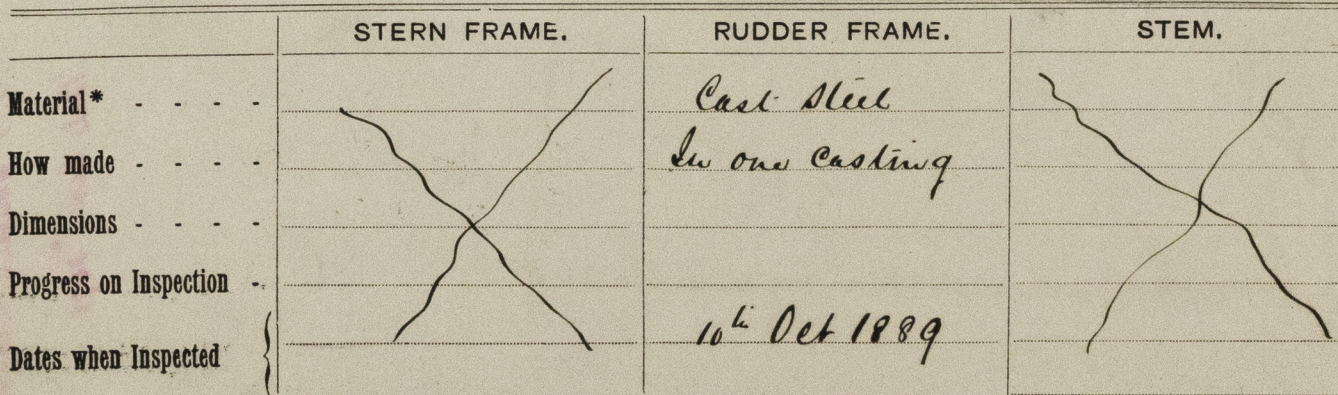 STERN FRAME. RUDDER FRAME. STEM.
Material* - - - - Cast Steel
How made - - - - In one casting
Dimensions - - - -
Progress on Inspection -
Dates when Inspected { 10th Oct 1889